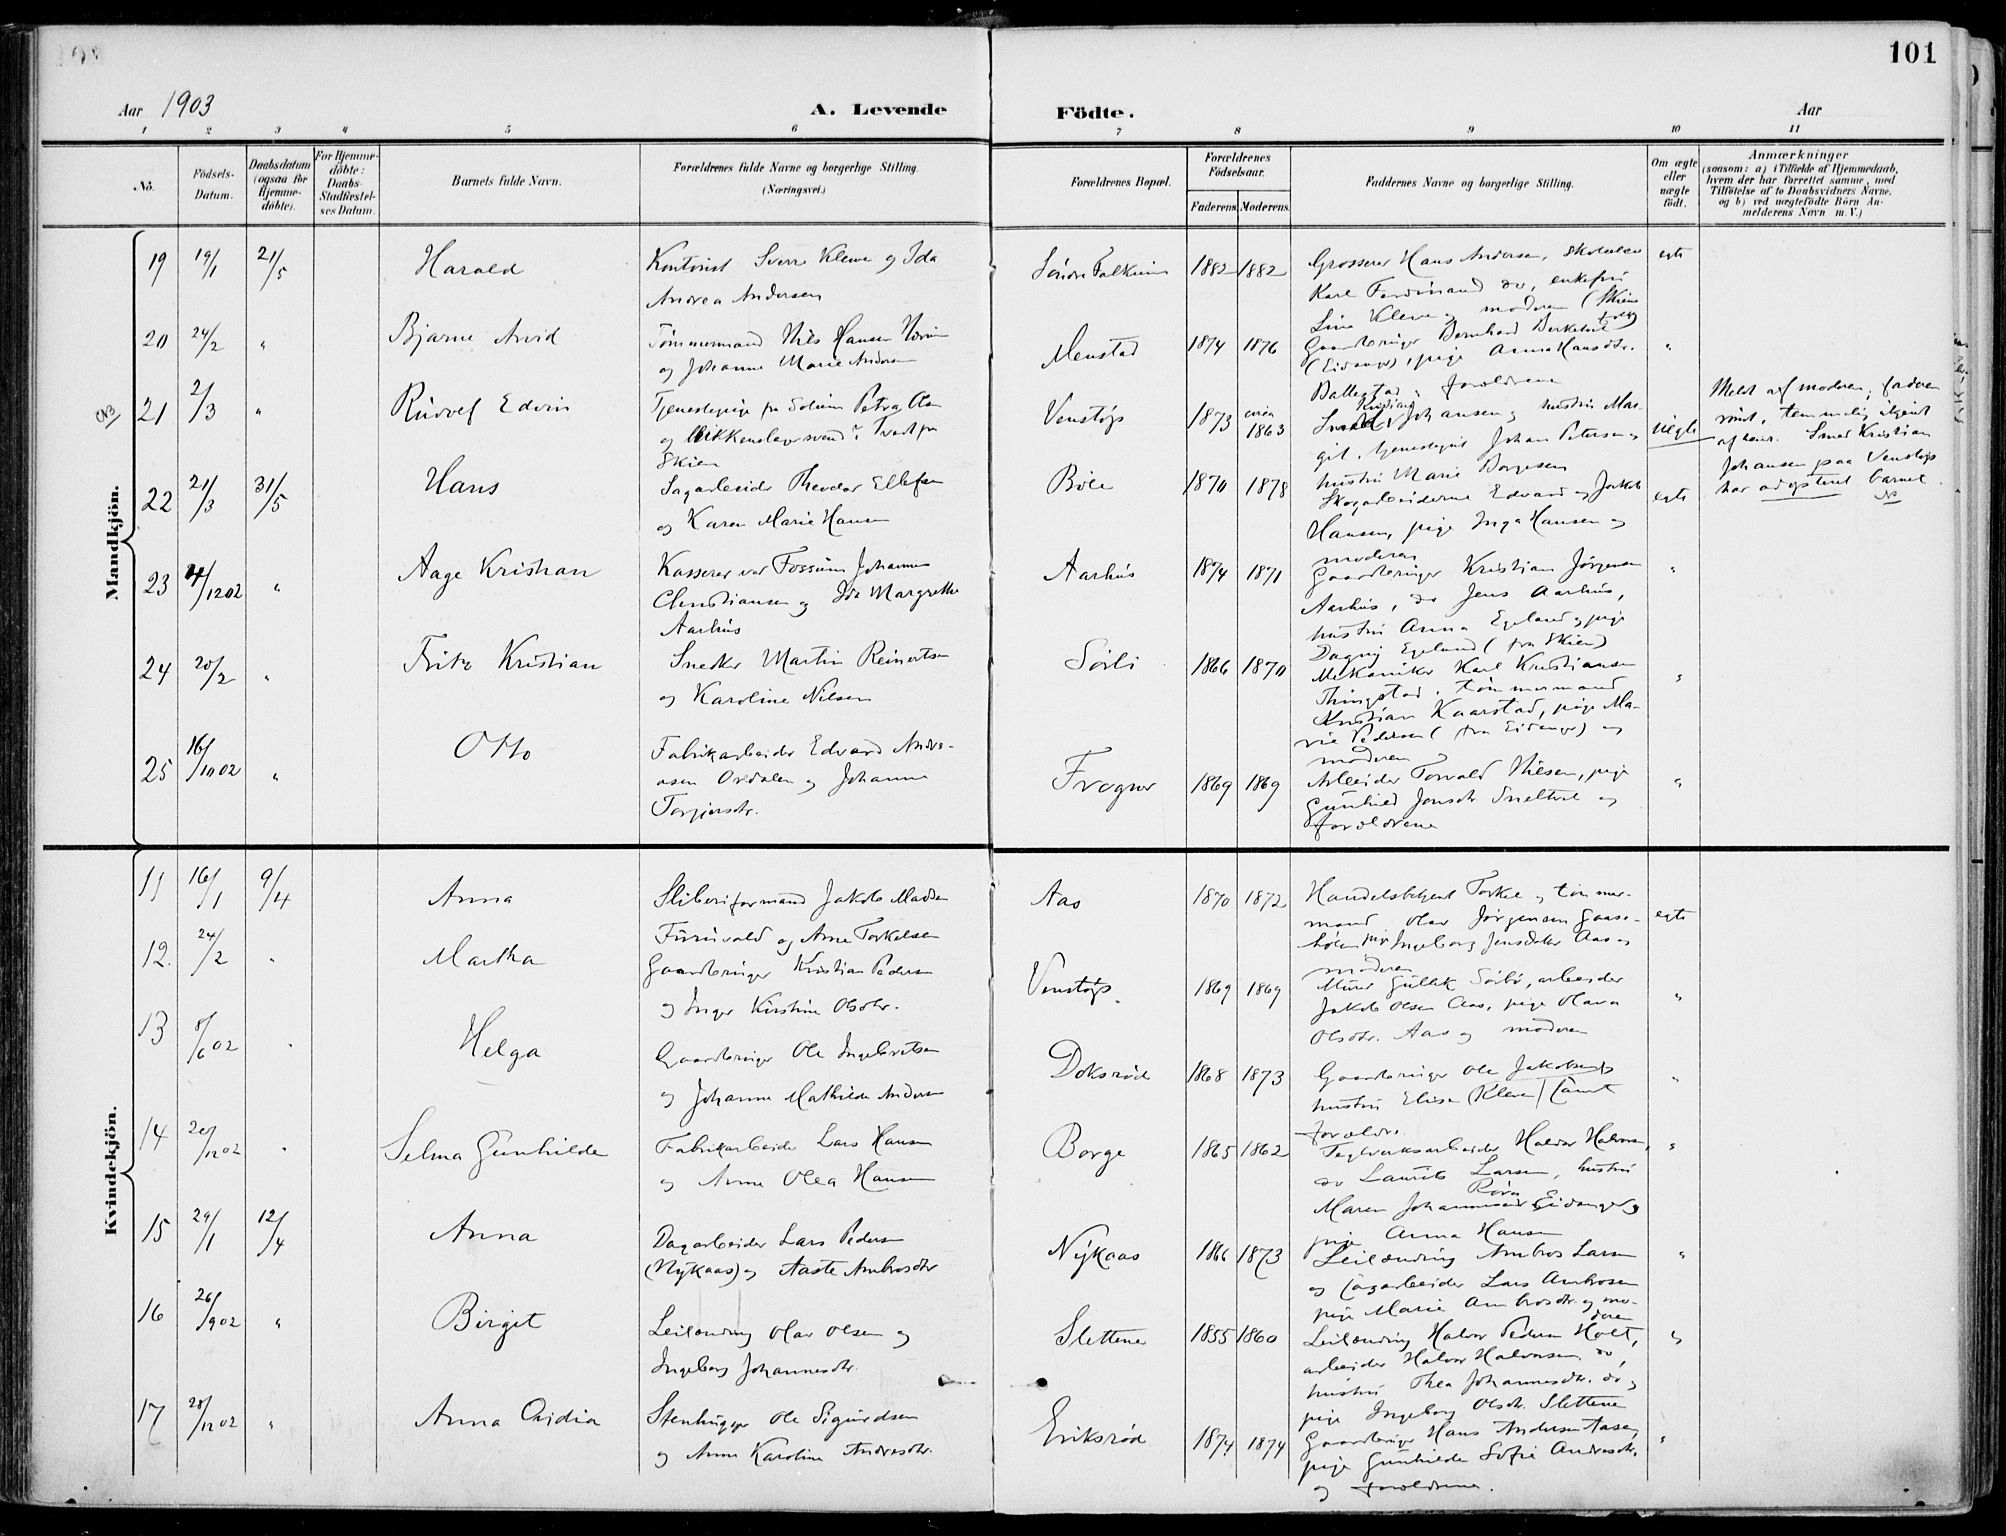 101
Aar 1903
A. Levende
Födte.
Aar
1 2 3 4 5 6 7 8 9 10 11
No.
Födsels-
Datum.
Daabsdatum
(ogsaa for
Hjemme-
döbte).
For Hjemme-
döbte:
Daabs-
Stadfæstel-
ses Datum.
Barnets fulde Navn.
Forældrenes fulde Navne og borgerlige Stilling.
(Næringsvei.)
Forældrenes Bopæl.
Forældrenes
Födselsaar.
Faderens. Moderens.
Faddernes Navne og borgerlige Stilling.
Om ægte
eller
uægte
födt.
Anmærkninger
(saasom: a) i Tilfælde af Hjemmedaab,
hvem der har forrettet samme, med
Tilföielse af to Daabsvidners Navne,
og b) ved uægtefödte Börn An-
melderens Navn m. V.)
Mandkjön.
19 19/1 21/5 Harald
Kontorist Sverre Kleve og Ida
Andrea Andersen
1882 1882
Grosserer Hans Andersen,
Karl Ferdinand do, enkefru
Line Kleve og moderen (Skien
egte
20 24/2 "
Bjarne Arvid
Tömmermand Nils Hansen
og Johanne Marie Andersen
Menstad
1874 1876
Gaardbruger Bernhard
(Eidanger), pige Anna Hansdtr.
Ballestad og forældrene
"
21 2/3 "
Rudolf Edvin
Tjenestepige fra Solum Petra
og Blikkenslagersvend
Skien
Venstöp
1873 circa 1863
Kristian
Smed Johansen og hustru Mar-
git, Johan Petersen og
hustru Marie Borgesen
uegte
Meldt af moderen; faderen
af hende. Smed Kristian
Johansen paa Venstöp
har adopteret barnet.
22 21/3 31/5
Hans
Sagarbeider Theodor Ellefsen
og Karen Marie Hansen
Böle
1870 1878
Skogarbeiderne Edvard og Jakob
Hansen, pige Inga Hansen og
moderen
egte
23 /12 02 "
Aage Kristian
Kasserer ved Fossum Johannes
Christiansen og Ida Margrethe
Aarhus
Aarhus
1874 1871
Gaardbruger Kristian Jörgensen
Aarhus, do Jens Aarhus,
hustru Anna Egeland og pige
Dagny Egeland (fra Skien)
"
24 20/2 "
Fritz Kristian
Snedker Martin Reinertsen
og Karoline Nilsen
Sörli
1866 1870
Mekaniker Karl Kristiansen
Thingstad, tömmermand
Kristian Kaarstad, pige Ma-
rie Pedersen (fra Eidanger) og
moderen
"
25 16/10 02 "
Otto
Fabrikarbeider Edvard Andre-
asen Oxdalen og Johanne
Torgjersdtr.
Frogner
1869 1869
Arbeider Torvald Nilsen, pige
Gunhild Jonsdtr og
forældrene
"
Kvindekjön.
11 16/1 9/4
Anna
Sliberiformand Jakob Madsen
Furuvald og Anne Torkelsen
Aas
1870 1872
Handelsbetjent Torkel og tömmer-
mand Olav Jörgensen Gaase-
pige Ingeborg Jensdatter Aas og
moderen
egte
12. 24/2 "
Martha
Gaardbruger Kristian Pedersen
og Inger Kirstine Olsdtr.
Venstöp.
1869 1869
Murer Gullik Sörbö, arbeider
Jakob Olsen Aas, pige Olava
Olsdtr. Aas og moderen
"
13 8/6 02 "
Helga
Gaardbruger Ole Ingebretsen
og Johanne Mathilde Andersen
Doksröd
1868 1873
Gaardbruger Ole Jakobsen og
hustru Elise (Kleven) samt
forældre.
"
14 /12 02 "
Selma Gunhilde
Fabrikarbeider Lars Hansen
og Anne Olea Hansen
Borge
1865 1862
Teglverksarbeider Halvor Halvorsen,
do Laurits Larsen, hustru
Röra
Maren Johannesen Eidanger og
pige Anna Hansen
"
15 29/1 12/4
Anna
Dagarbeider Lars Pedersen
(Nykaas) og Aaste Ambrosdtr
Nykaas
1866 1873
Leilænding Ambros Larsen
og Lars Ambrosen
pige Marie Ambrosdtr. og mo-
deren
"
16 26/9 02 "
Birgit
Leilænding Olav Olsen og
Ingeborg Johannesdtr.
Slettene
1855 1860
Leilænding Halvor Pedersen Holt,
arbeider Halvor Halvorsen do,
hustru Thea Johannesdtr. do og
pige Ingeborg Olsdtr. Slettene
17 28/12 02 "
Anna Ovidia
Stenhugger Ole Sigurdsen
og Anne Karoline Andresdtr.
Eriksröd
1874 1874
Gaardbruger Hans Andersen Aasen,
pige Gunhilde Sofie Andresdtr.
og forældrene.
"